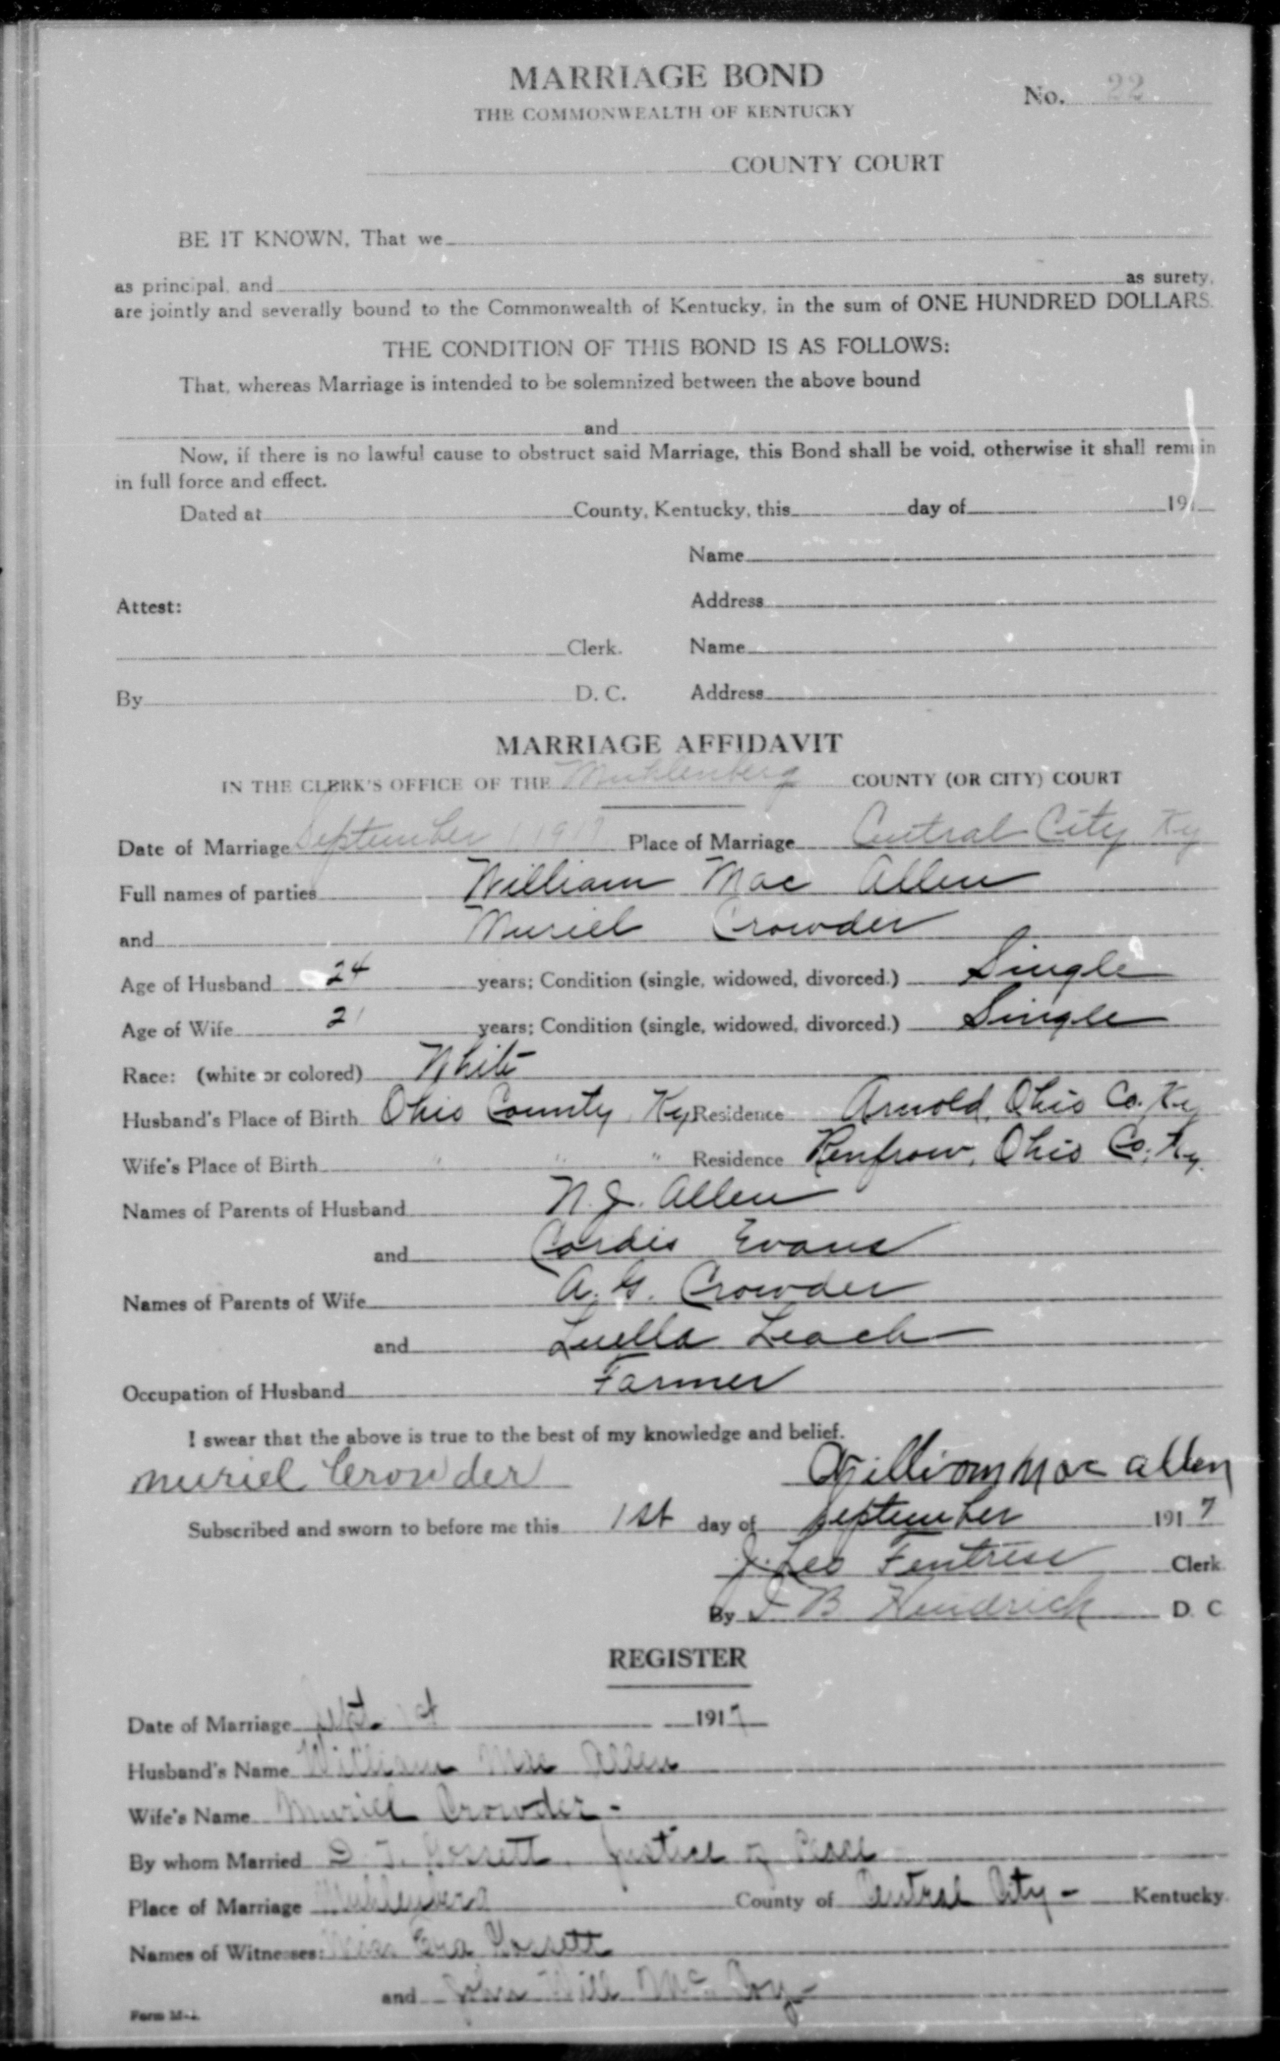 MARRIAGE BOND
THE COMMONWEALTH OF KENTUCKY
No. 22
COUNTY COURT
BE IT KNOWN, That we
as principal, and as surety,
are jointly and severally bound to the Commonwealth of Kentucky, in the sum of ONE HUNDRED DOLLARS.
THE CONDITION OF THIS BOND IS AS FOLLOWS:
That, whereas Marriage is intended to be solemnized between the above bound
and
Now, if there is no lawful cause to obstruct said Marriage, this Bond shall be void, otherwise it shall remain
in full force and effect.
Dated at County, Kentucky, this day of 191
Name
Attest: Address
Clerk. Name
By D. C. Address
MARRIAGE AFFIDAVIT
IN THE CLERK'S OFFICE OF THE Muhlenberg COUNTY (OR CITY) COURT
Date of Marriage September 1 1917 Place of Marriage Central City Ky
Full names of parties William Mac Allen
and Muriel Crowder
Age of Husband 24 years; Condition (single, widowed, divorced.) Single
Age of Wife 21 years; Condition (single, widowed, divorced.) Single
Race: (white or colored) White
Husband's Place of Birth Ohio County Ky Residence Arnold, Ohio Co. Ky
Wife's Place of Birth " " " Residence Renfrow, Ohio Co. Ky.
Names of Parents of Husband N. J. Allen
and Cordis Evans
Names of Parents of Wife A. G. Crowder
and Luella Leach
Occupation of Husband Farmer
I swear that the above is true to the best of my knowledge and belief.
Muriel Crowder William Mac Allen
Subscribed and sworn to before me this 1st day of September 1917
J. Leo Fentress Clerk.
By B Hendrick D. C
REGISTER
Date of Marriage Sept. 1st 1917
Husband's Name William Mac Allen
Wife's Name Muriel Crowder -
By whom Married D. T. Gossett, Justice of Peace
Place of Marriage Muhlenberg County of Central City - Kentucky.
Names of Witnesses: Miss Eva Gossett
and John Will McCoy -
Form M-1.